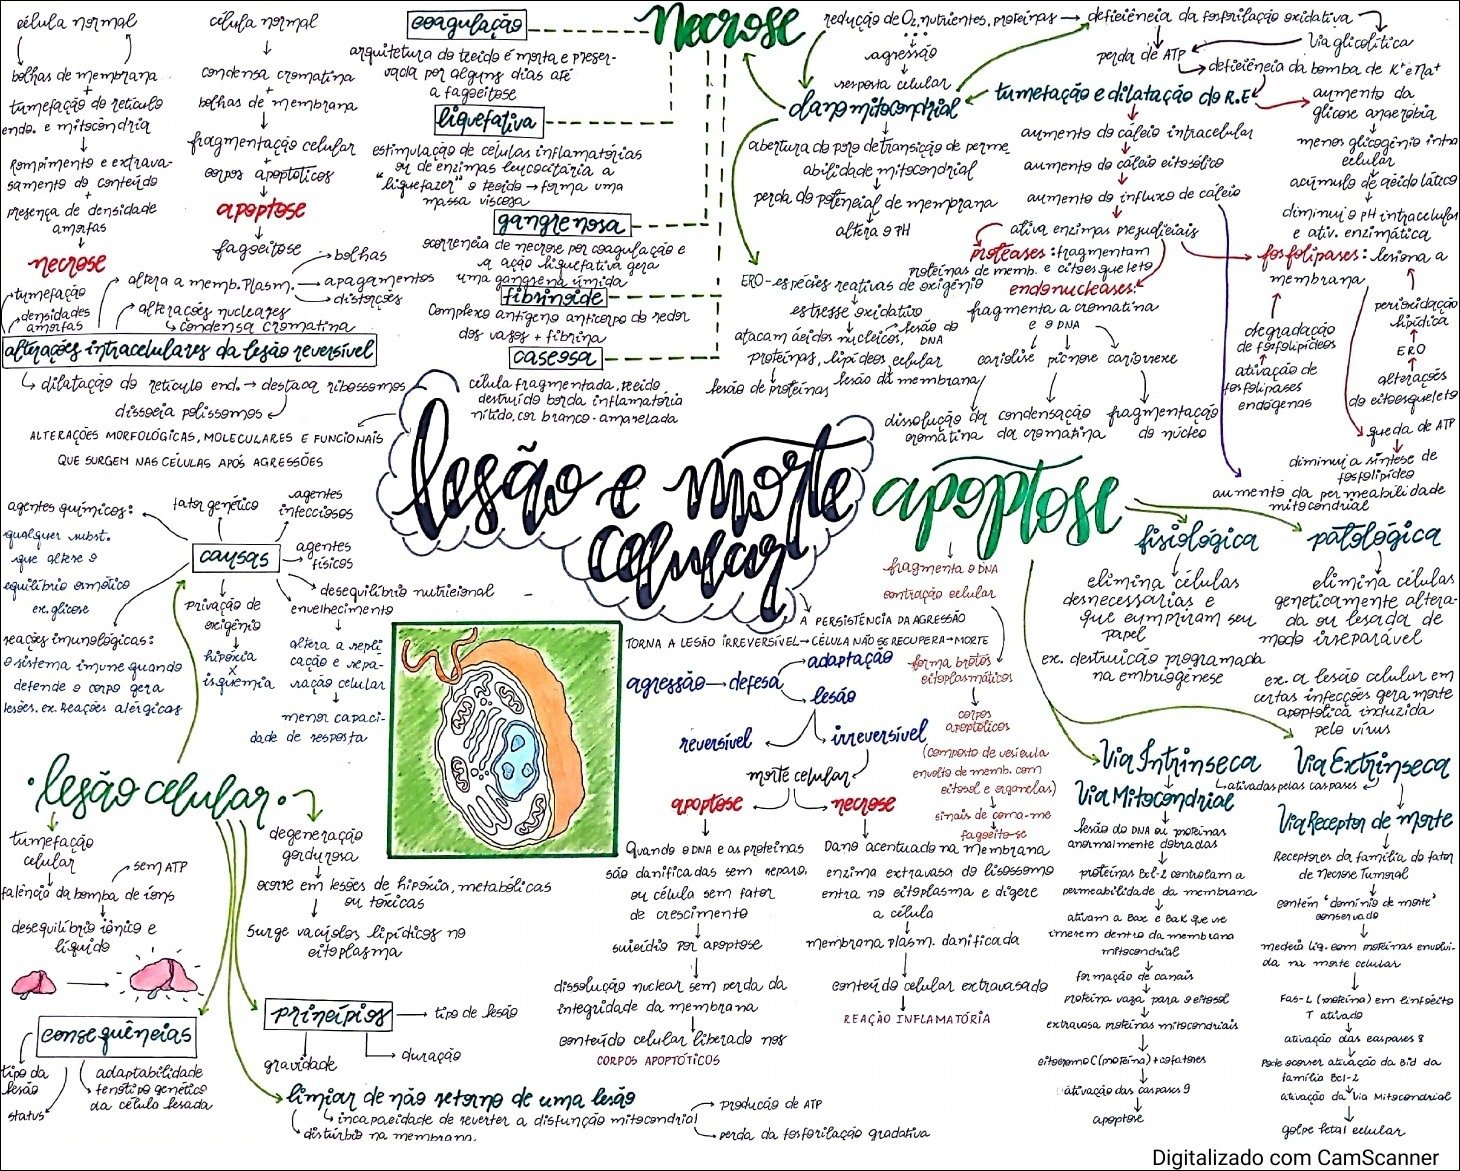 célula normal
bolhas de membrana
+
tumefação do retículo
endo. e mitocôndria
rompimento e extrava-
samento do conteúdo
+
presença de densidade
amorfas
necrose
célula normal
condensa cromatina
+
bolhas de membrana
fragmentação celular
+
corpos apoptóticos
apoptose
fagocitose
coagulação
arquitetura do tecido é morta e preser-
vada por alguns dias até
a fagocitose
liquefativa
estimulação de células inflamatórias
ou de enzimas leucocitária a
"liquefazer" o tecido → forma uma
massa viscosa
gangrenosa
ocorrencia de necrose por coagulação e
a ação liquefativa gera
uma gangrena úmida
fibrinoide
Complexo antígeno anticorpo do redor
dos vasos + fibrina
caseosa
célula fragmentada, tecido
destruído borda inflamatoria
nítida, cor branco-amarelada
necrose
redução de O2, nutrientes, proteínas → deficiência da fosforilação oxidativa
agressão
resposta celular
dano mitocondrial
abertura do poro de transição de perme
abilidade mitocondrial
perda do potencial de membrana
altera o PH
ERO-espécies reativas de oxigênio
estresse oxidativo
lesão do DNA
atacam ácidos nucleicos,
proteínas, lipídeos celular
lesão de proteínas
lesão da membrana
via glicolítica
perda de ATP
deficiência da bomba de K+ e Na+
tumefação e dilatação do R.E
aumento do cálcio intracelular
aumento do cálcio citosólico
aumento do influxo de cálcio
ativa enzimas prejudiciais
proteases: fragmentam
proteínas de memb. e citoesqueleto
endonucleases:
fragmenta a cromatina
e o DNA
cariólise picnose cariorrexe
dissolução da
cromatina
condensação
da cromatina
fragmentação
do núcleo
aumento da
glicose anaeróbia
menos glicogênio intra
celular
acúmulo de ácido lático
diminui o pH intracelular
e ativ. enzimática
fosfolipases: lesiona a
membrana
degradação
de fosfolipídeos
ativação de
fosfolipases
endógenas
perioxidação
lipídica
ERO
alterações
do citoesqueleto
queda de ATP
diminui a síntese de
fosfolipídeo
aumento da permeabilidade
mitocondrial
tumefação
densidades
amorfas
altera a memb. Plasm.
bolhas
apagamentos
distorções
alterações nucleares
condensa cromatina
alterações intracelulares da lesão reversível
dilatação do retículo end. → destaca ribossomos
dissocia polissomos
ALTERAÇÕES MORFOLÓGICAS, MOLECULARES E FUNCIONAIS
QUE SURGEM NAS CÉLULAS APÓS AGRESSÕES
lesão e morte
celular
agentes químicos:
qualquer subst.
que altere o
equilíbrio osmótico
ex. glicose
fator genético
agentes
infecciosos
causas
agentes
físicos
desequilíbrio nutricional
envelhecimento
altera a repli
cação e repa-
ração celular
menor capaci-
dade de resposta
privação de
oxigênio
hipóxia
x
isquemia
reações imunológicas:
o sistema imune quando
defende o corpo gera
lesões. ex. Reações alérgicas
A PERSISTÊNCIA DA AGRESSÃO
TORNA A LESÃO IRREVERSÍVEL → CÉLULA NÃO SE RECUPERA → MORTE
agressão → defesa
adaptação
lesão
reversível
irreversível
morte celular
apoptose
necrose
Quando o DNA e as proteínas
são danificadas sem reparo,
ou célula sem fator
de crescimento
suicídio por apoptose
dissolução nuclear sem perda da
integridade da membrana
conteúdo celular liberado nos
CORPOS APOPTÓTICOS
Dano acentuado na membrana
enzima extravasa do lisossomo
entra no citoplasma e digere
a célula
membrana plasm. danificada
conteúdo celular extravasado
REAÇÃO INFLAMATÓRIA
apoptose
fragmenta o DNA
contração celular
forma brotos
citoplasmáticos
corpos
apoptóticos
(composto de vesícula
envolto de memb. com
citosol e organelas)
sinais de coma-me
fagocita-se
fisiológica
elimina células
desnecessárias e
que cumpriram seu
papel
ex. destruição programada
na embriogênese
patológica
elimina células
geneticamente altera-
da ou lesada de
modo irreparável
ex. a lesão celular em
certas infecções gera morte
apoptolica induzida
pelo vírus
Via Intrínseca
Via Extrínseca
ativadas pelas caspases
Via Mitocondrial
lesão do DNA ou proteínas
anormalmente dobradas
proteínas Bcl-2 controlam a
permeabilidade da membrana
ativam a Bax e Bak que se
inserem dentro da membrana
mitocondrial
formação de canais
proteína vaza para o citosol
extravasa proteínas mitocondriais
citocromo C (proteína) + cofatores
ativação das caspases 9
apoptose
Via Receptor de morte
Receptores da família do fator
de Necrose Tumoral
contém "domínio de morte"
conservado
medeia lig. com proteínas envolvi-
da na morte celular
Fas-L (proteína) em linfócito
T ativado
ativação das caspases 8
Pode ocorrer ativação da Bid da
família Bcl-2
ativação da via Mitocondrial
golpe fatal celular
lesão celular
tumefação
celular
falência da bomba de íons
sem ATP
desequilíbrio iônico e
líquido
degeneração
gordurosa
ocorre em lesões de hipóxia, metabólicas
ou tóxicas
Surge vacúolos lipídicos no
citoplasma
consequências
tipo da
lesão
status
adaptabilidade
fenótipo genético
da célula lesada
princípios
tipo de lesão
gravidade
duração
limiar de não retorno de uma lesão
incapacidade de reverter a disfunção mitocondrial
distúrbio na membrana.
produção de ATP
perda da fosforilação gradativa
Digitalizado com CamScanner